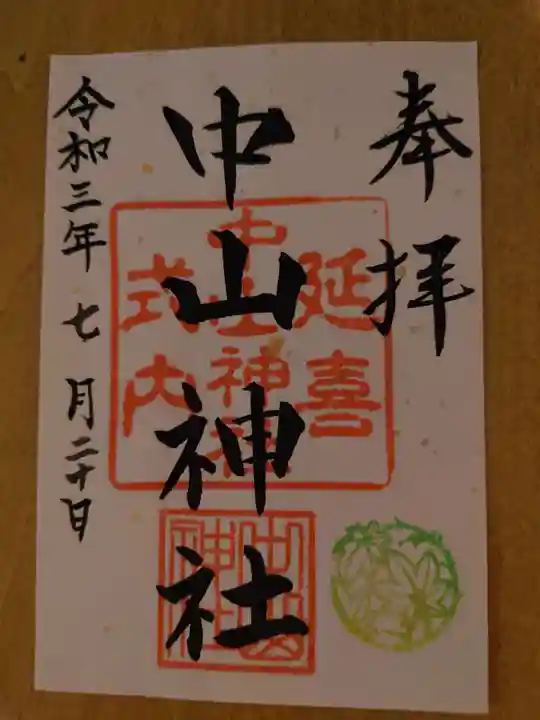 奉拝
延喜
中山神社
式内
中山神社
中山
神社
令和三年 七月二十日